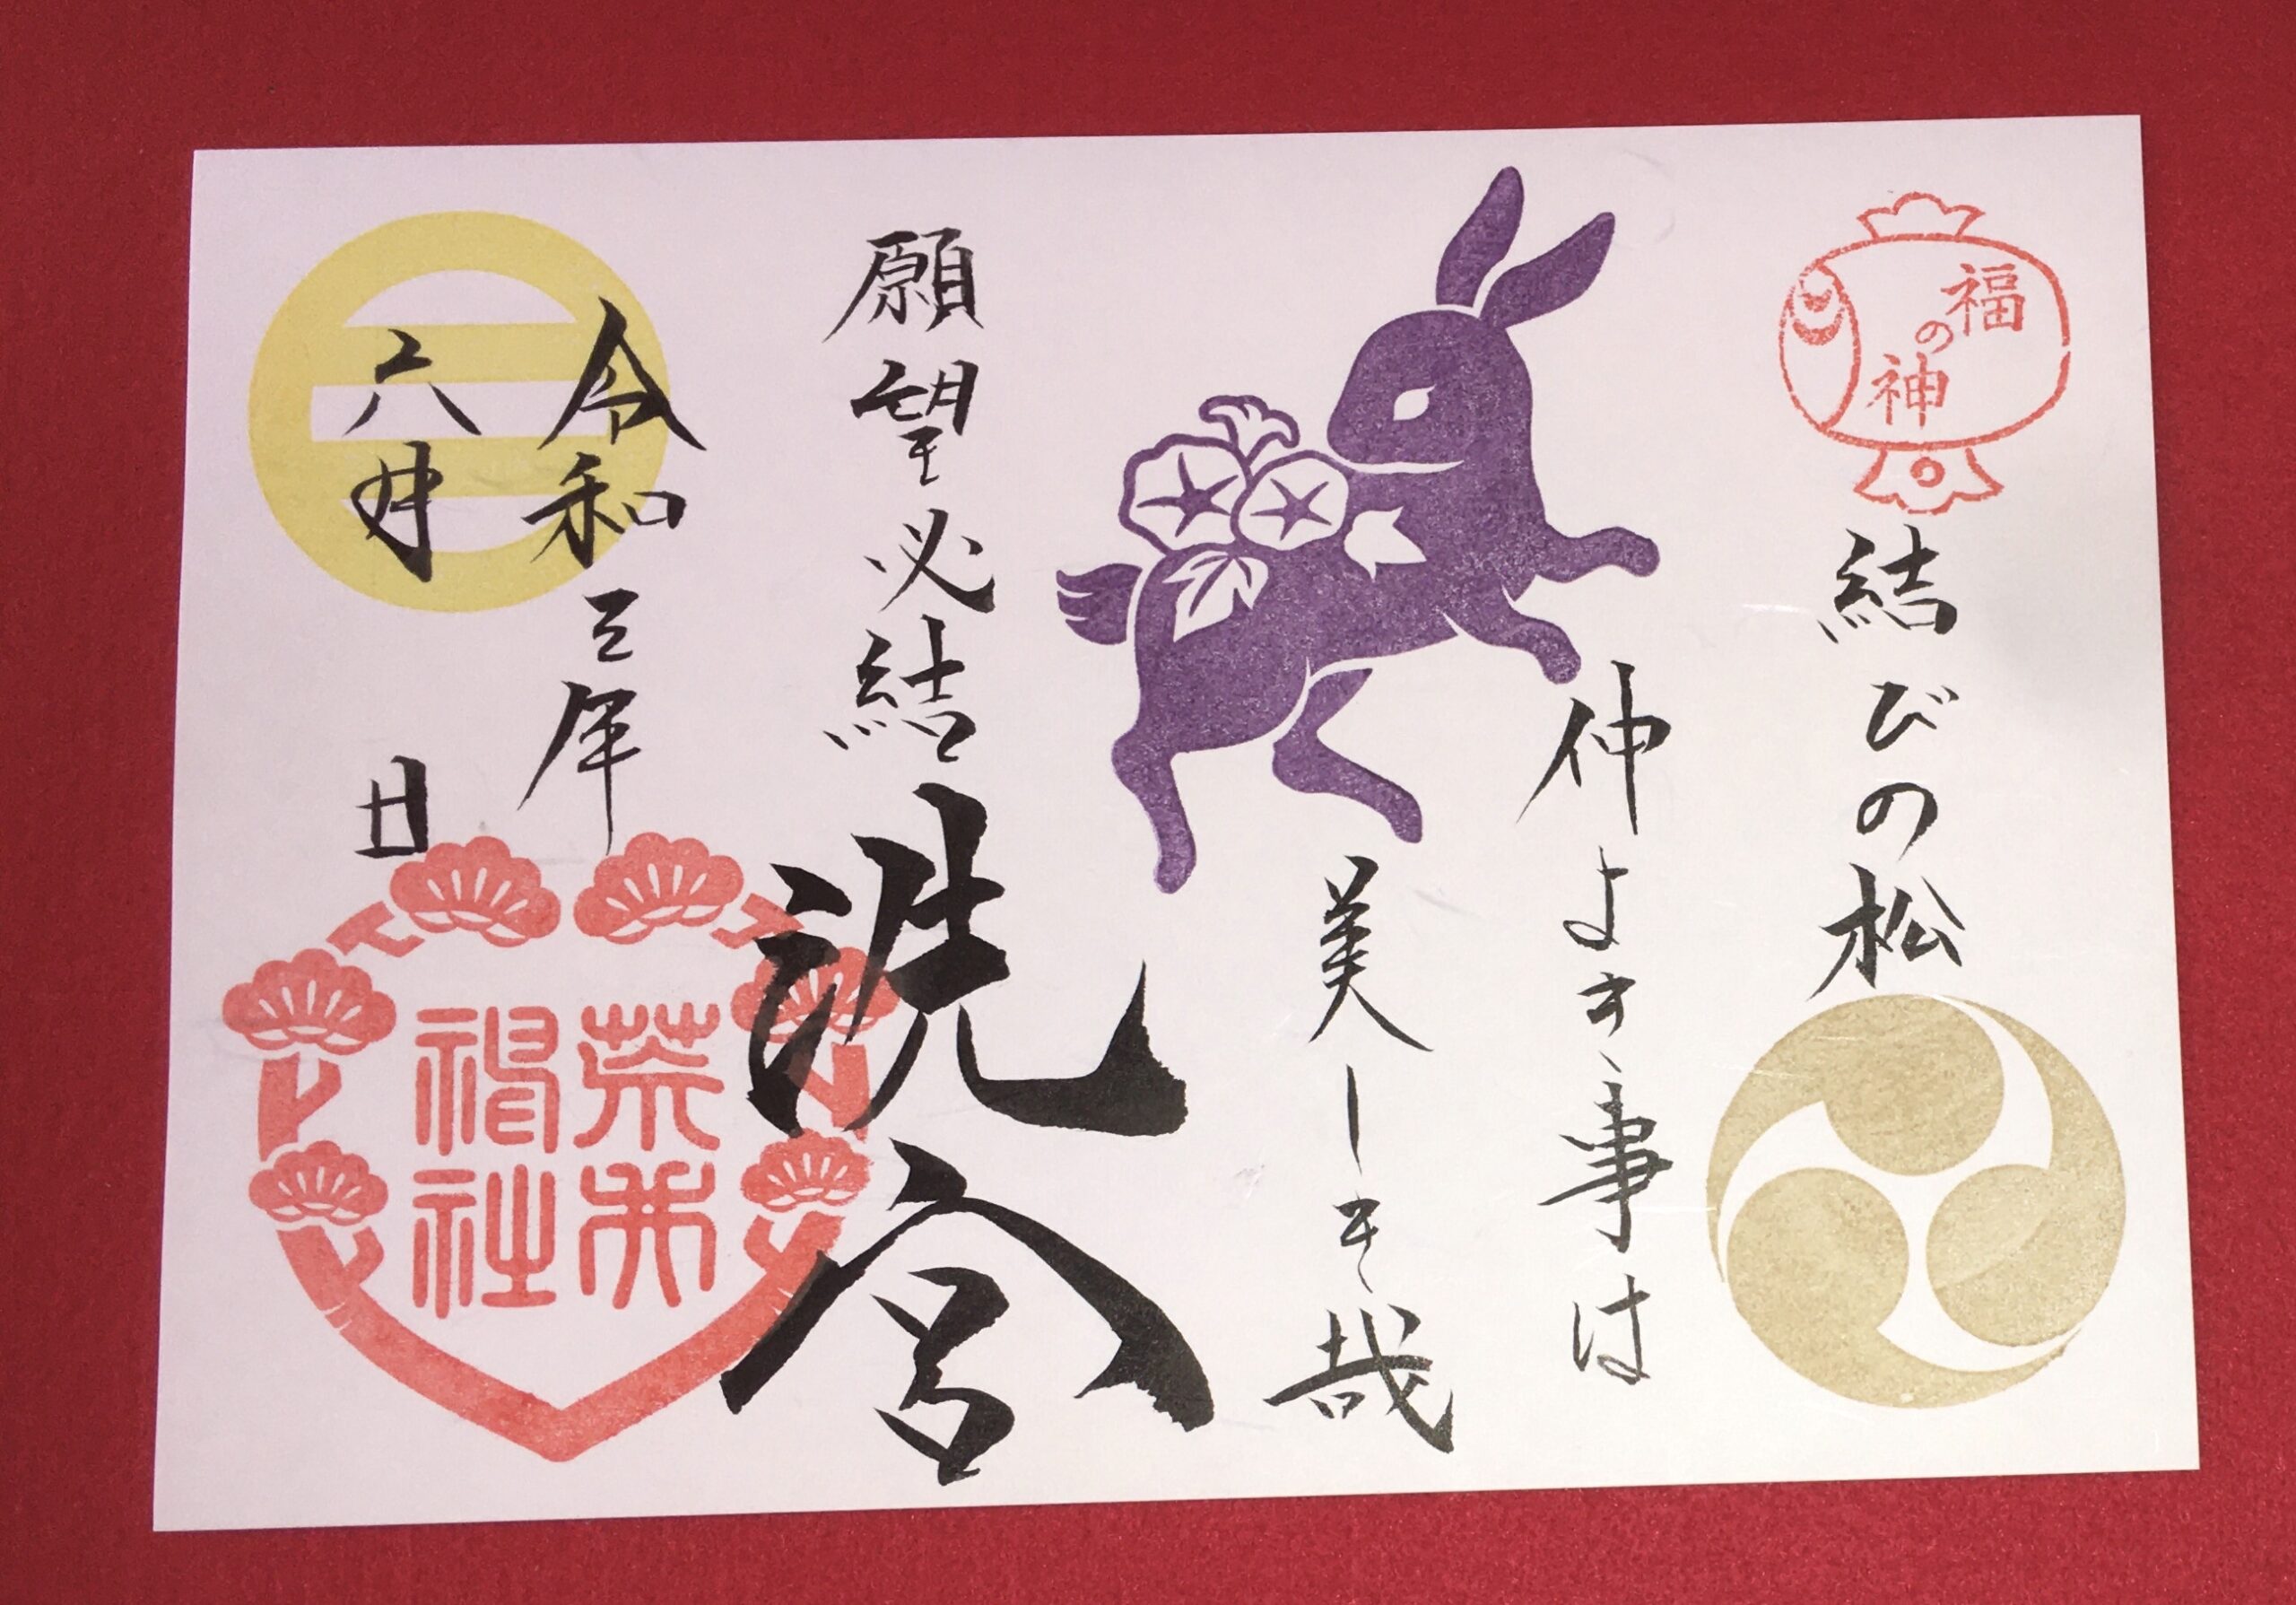 福の神
結びの松
仲よき事は
美しき哉
願望必結
洗宮
令和三年
六月 日
荒井
神社